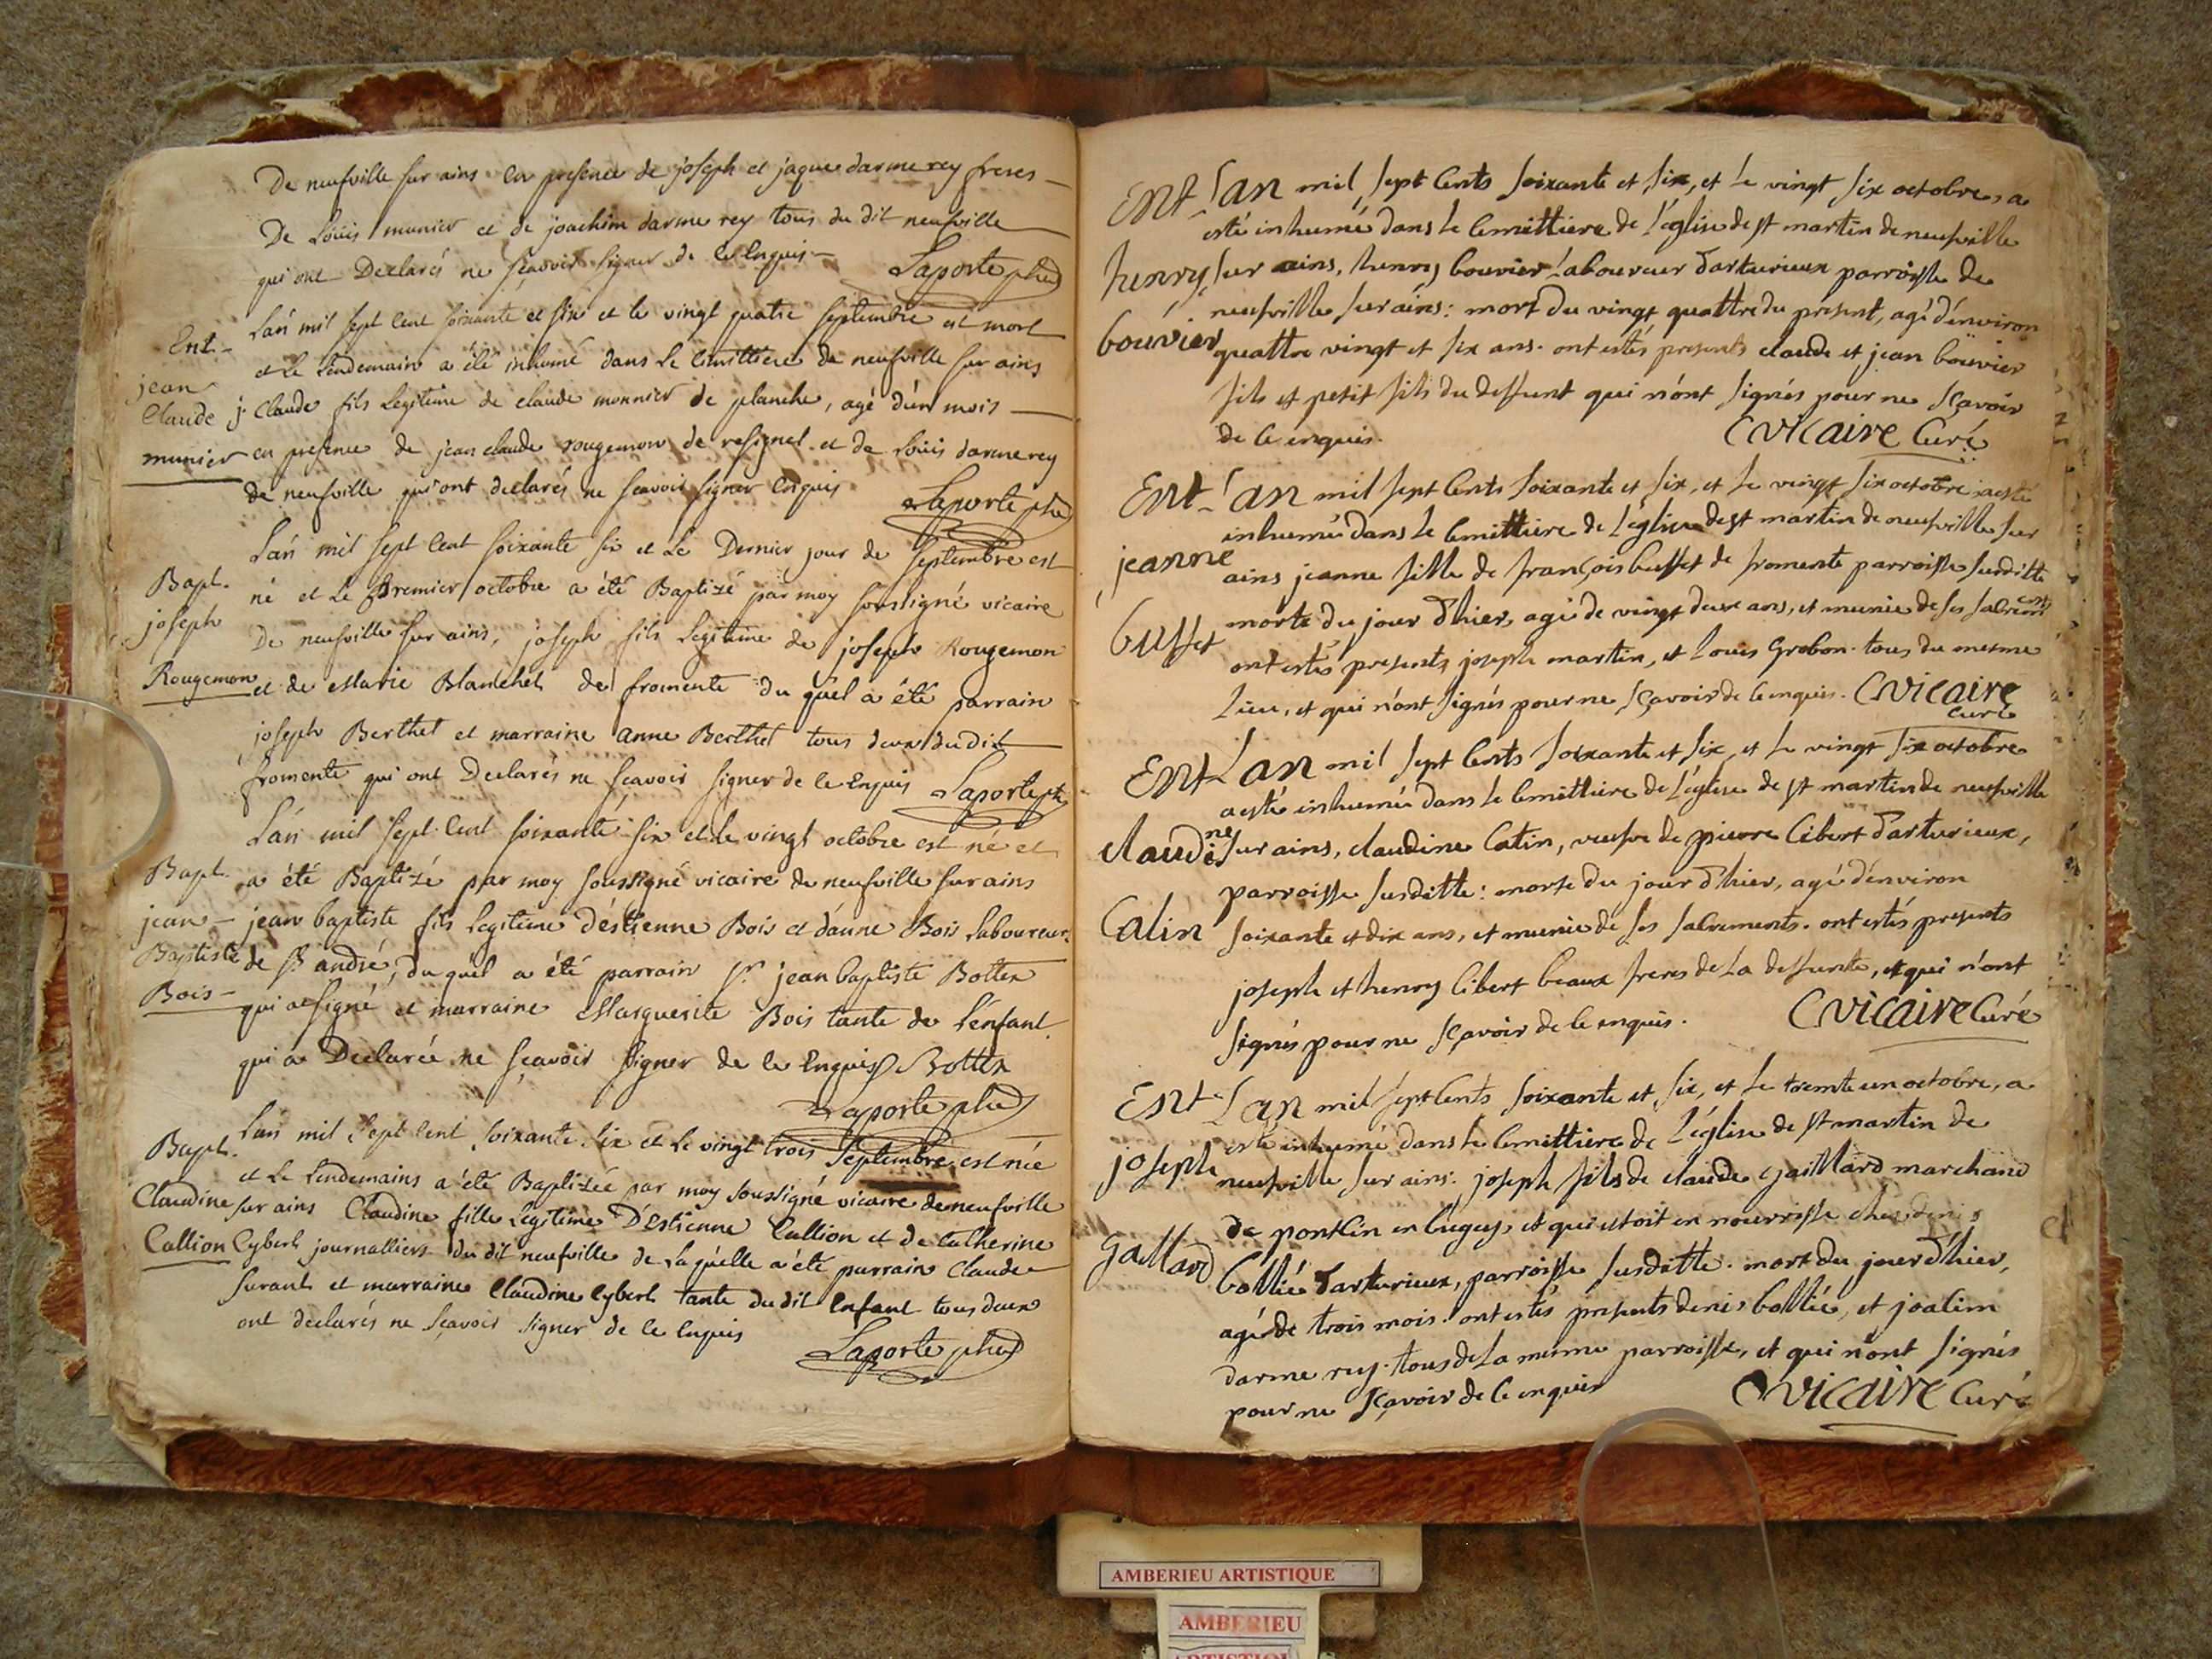 De neufville sur ains en presence de joseph et jaque darmerey freres
De Loüis munier et de joachim darmerey tous du dit neufville
qui ont Declarés ne sçavoir signer de ce Enquis
Laporte ptre
Ent.
jean
Claude
munier
L'an mil sept cent soixante et six et le vingt quatre septembre est mort
et le lendemain a été inhumé dans le cimittiere de neufville sur ains
j. Claude fils Legitime de claude monnier de planche, agé d'un mois
en presence de jean claude rougemon de resignel et de Loüis darmerey
de neufville qui ont declarés ne scavoir signer Enquis
Laporte ptre
Bapt.
joseph
Rougemon
L'an mil sept cent soixante six et le Dernier jour de septembre est
né et le premier octobre a été Baptizé par moy soussigné vicaire
De neufville sur ains, joseph fils Legitime de joseph Rougemon
et de Marie Blanchet de fromente du quel a été parrain
joseph Berthet et marraine anne Berthet tous deux du dit
fromente qui ont Declarés ne sçavoir signer de ce Enquis
Laporte ptre
Bapt.
jean
Baptiste
Bois
L'an mil sept cent soixante six et le vingt octobre est né et
a été Baptizé par moy soussigné vicaire de neufville sur ains
jean baptiste fils Legitime d'éstienne Bois et d'anne Bois Laboureur
de st andré, du quel a été parrain sr. jean baptiste Bottex
qui a signé et marraine Marguerite Bois tante de l'enfant
qui a Declarée ne sçavoir signer de ce Enquis Bottex
Laporte ptre
Bapt.
Claudine
Callion
L'an mil sept cent soixante six et le vingt trois septembre est née
et le lendemains a été Baptizée par moy soussigné vicaire de neufville
sur ains Claudine fille Legitime D'Estienne Callion et de Catherine
Cybert journalliers du dit neufville de Laquelle a été parrain Claude
furant et marraine Claudine Cybert tante du dit Enfant tous deux
ont declarés ne sçavoir signer de ce Enquis
Laporte ptre
Ent
henry
bouvier
L'an mil sept cents soixante et six, et le vingt six octobre, a
esté inhumé dans le cemittiere de l'église de st martin de neufville
sur ains, henry bouvier Laboureur d'arturieux parroisse de
neufville sur ains: mort du vingt quattre du présent, agé d'environ
quattre vingt et six ans. ont estés presents claude et jean boüvier
fils et petit fils du deffunt qui n'ont signés pour ne sçavoir
de ce enquis.
Cvicaire Curé
Ent
jeanne
buffet
L'an mil sept cents soixante et six, et le vingt six octobre a esté
inhumée dans le cemittiere de l'église de st martin de neufville sur
ains jeanne fille de françois buffet de fromente parroisse susditte
morte du jour d'hier, agée de vingt deux ans, et munie de ses sacrements
ont estés presents joseph martin, et Louis Grobon tous du mesme
Lieu, et qui n'ont signés pour ne sçavoir de ce enquis. Cvicaire
curé
Ent
claudine
Catin
L'an mil sept cents soixante et six, et le vingt six octobre
a esté inhumée dans le cemittiere de l'église de st martin de neufville
sur ains, claudine Catin, veufve de pierre Cibert d'arturieux,
parroisse susditte: morte du jour d'hier, agée d'environ
soixante et dix ans, et munie de ses sacrements. ont estés presents
joseph et henry Cibert beaux freres de La deffunte, et qui n'ont
signés pour ne sçavoir de ce enquis.
Cvicaire Curé
Ent
joseph
gaillard
L'an mil sept cents soixante et six, et le trente un octobre, a
esté inhumé dans le cemittiere de l'église de st martin de
neufville sur ains: joseph fils de claude gaillard marchand
de pontcin en bugey, et qui etoit en nourrisse chez denis
bollié d'arturieux, parroisse susditte. mort du jour d'hier,
agé de trois mois. ont estés presents denis bollié, et joatim
darme rey. tous de la même parroisse, et qui n'ont signés
pour ne sçavoir de ce enquis
Cvicaire Curé
et
AMBERIEU ARTISTIQUE
AMBERIEU
ARTISTIQUE